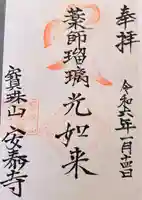 奉拝
令和六年一月十四日
薬師瑠璃光如来
寶珠山 安泰寺